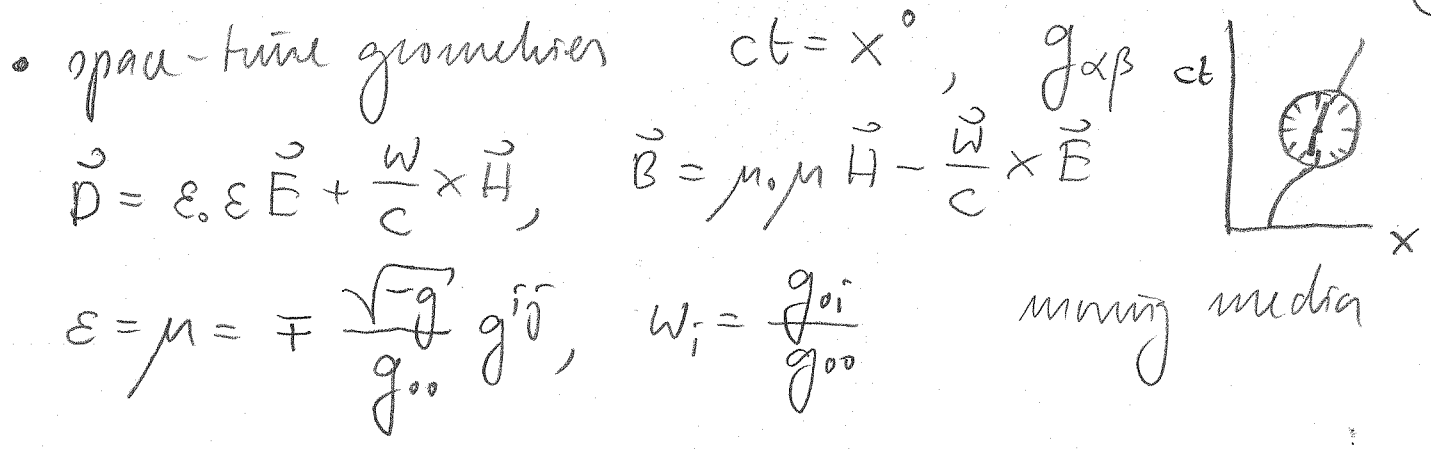 • space-time geometries ct = x⁰, g_{αβ} ct
D⃗ = ε₀ ε E⃗ + w/c × H⃗, B⃗ = μ₀ μ H⃗ − w⃗/c × E⃗
x
ε = μ = ∓ √−g/g₀₀ g^{ij}, w_i = g_{0i}/g₀₀ moving media